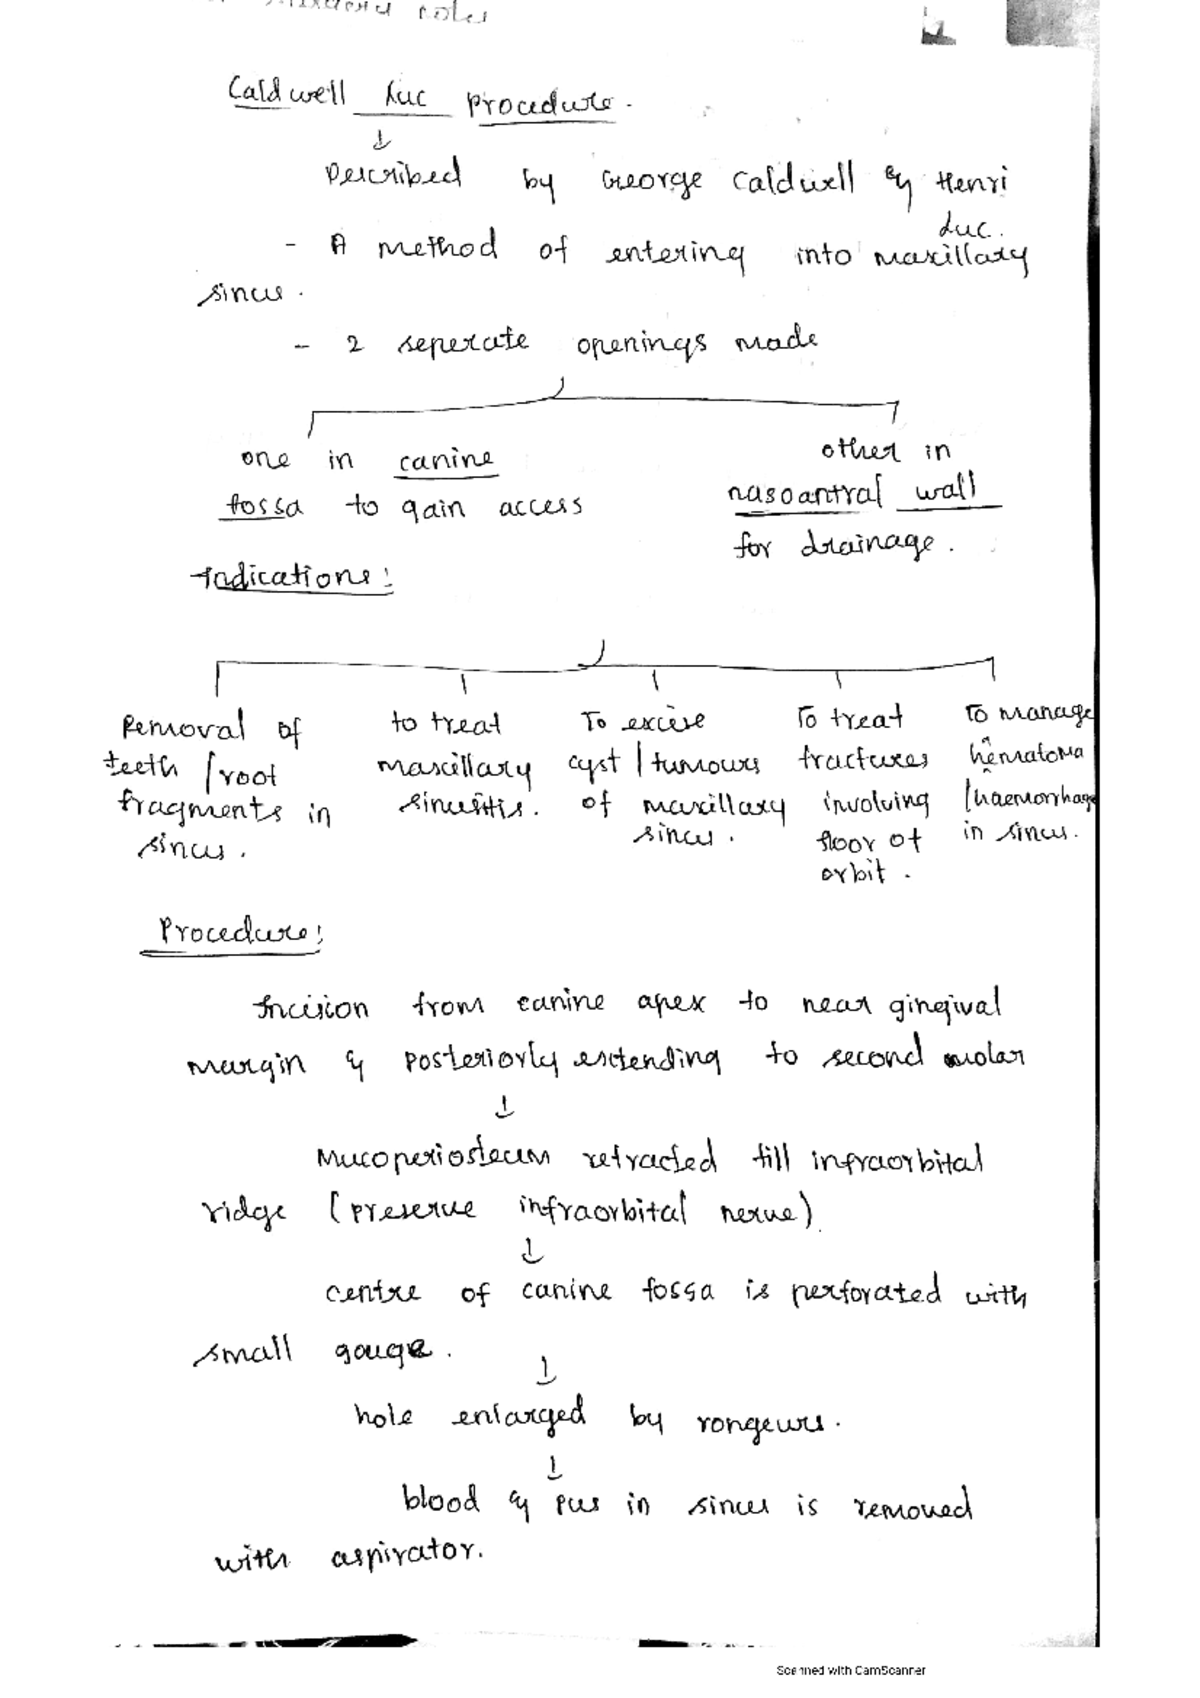 notes
Caldwell Luc Procedure.
Described by George Caldwell & Henri
Luc.
- A method of entering into maxillary
sinus.
- 2 seperate openings made
one in canine
fossa to gain access
other in
nasoantral wall
for drainage.
Indications:
Removal of
teeth / root
fragments in
sinus.
to treat
maxillary
sinusitis.
To excise
cyst / tumours
of maxillary
sinus.
To treat
fractures
involving
floor of
orbit.
To manage
hematoma
/haemorrhage
in sinus.
Procedure:
Incision from canine apex to near gingival
margin & posteriorly extending to second molar
Mucoperiosteum retracted till infraorbital
ridge (preserve infraorbital nerve)
centre of canine fossa is perforated with
small gouge.
hole enlarged by rongeurs.
blood & pus in sinus is removed
with aspirator.
Scanned with CamScanner